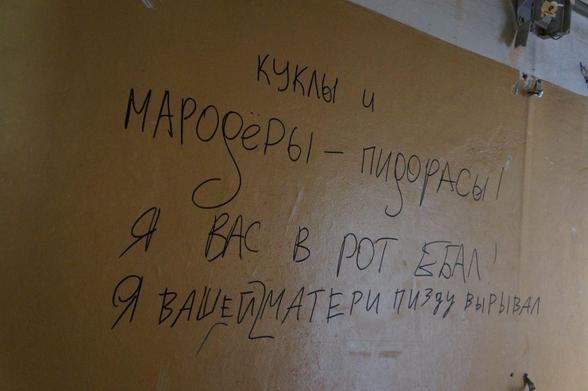 КУКЛЫ И
МАРОДЁРЫ – ПИДОРАСЫ!
Я ВАС В РОТ ЕБАЛ!
Я ВАШЕЙ МАТЕРИ ПИЗДУ ВЫРЫВАЛ